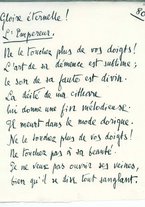 Gloire éternelle !
80
L'Empereur.
Ne le touchez plus de vos doigts !
L'art de sa démence est sublime ;
le son de sa faute est divin.
La dicte de ma cithare
lui donne une fin mélodieuse.
Il meurt dans le mode dorique.
Ne le touchez plus de vos doigts !
Ne touchez pas à sa beauté.
Je ne veux pas ouvrir ses veines,
bien qu'il se dise tout sanglant.